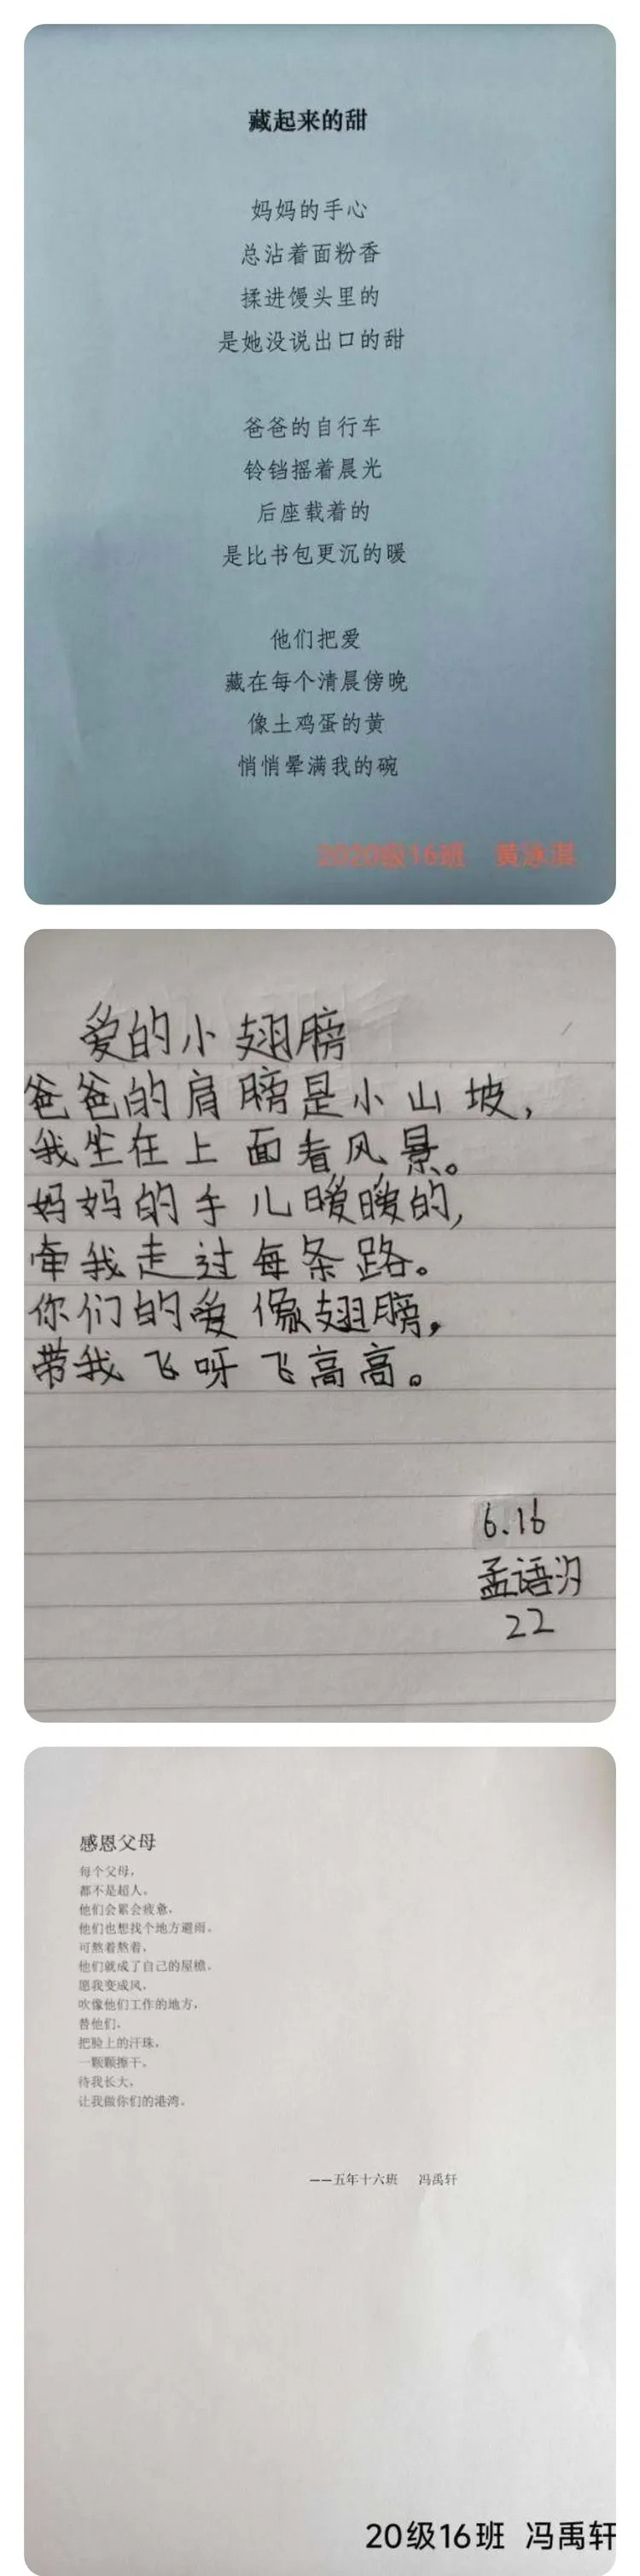 藏起来的甜
妈妈的手心
总沾着面粉香
揉进馒头里的
是她没说出口的甜
爸爸的自行车
铃铛摇着晨光
后座载着的
是比书包更沉的暖
他们把爱
藏在每个清晨傍晚
像土鸡蛋的黄
悄悄晕满我的碗
2020级16班 黄泳淇
爱的小翅膀
爸爸的肩膀是小山坡，
我坐在上面看风景。
妈妈的手儿暖暖的，
牵我走过每条路。
你们的爱像翅膀，
带我飞呀飞高高。
6.16
孟语汐
22
感恩父母
每个父母，
都不是超人。
他们会累会疲惫，
他们也想找个地方避雨。
可熬着熬着，
他们就成了自己的屋檐。
愿我变成风，
吹像他们工作的地方，
替他们，
把脸上的汗珠，
一颗颗擦干。
待我长大，
让我做你们的港湾。
——五年十六班 冯禹轩
20级16班 冯禹轩